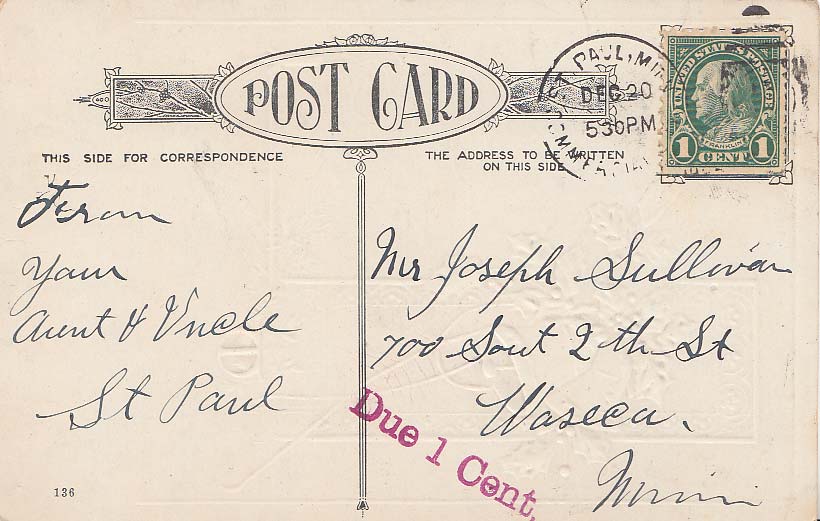 POST CARD
THIS SIDE FOR CORRESPONDENCE
THE ADDRESS TO BE WRITTEN
ON THIS SIDE
ST PAUL, MIN
DEC 20
530 PM
UNITED STATES POSTAGE
FRANKLIN
1 CENT 1
From
Your
Aunt & Uncle
St Paul
Mr Joseph Sullivan
700 Sout 2th St
Waseca.
Minn
Due 1 Cent.
136